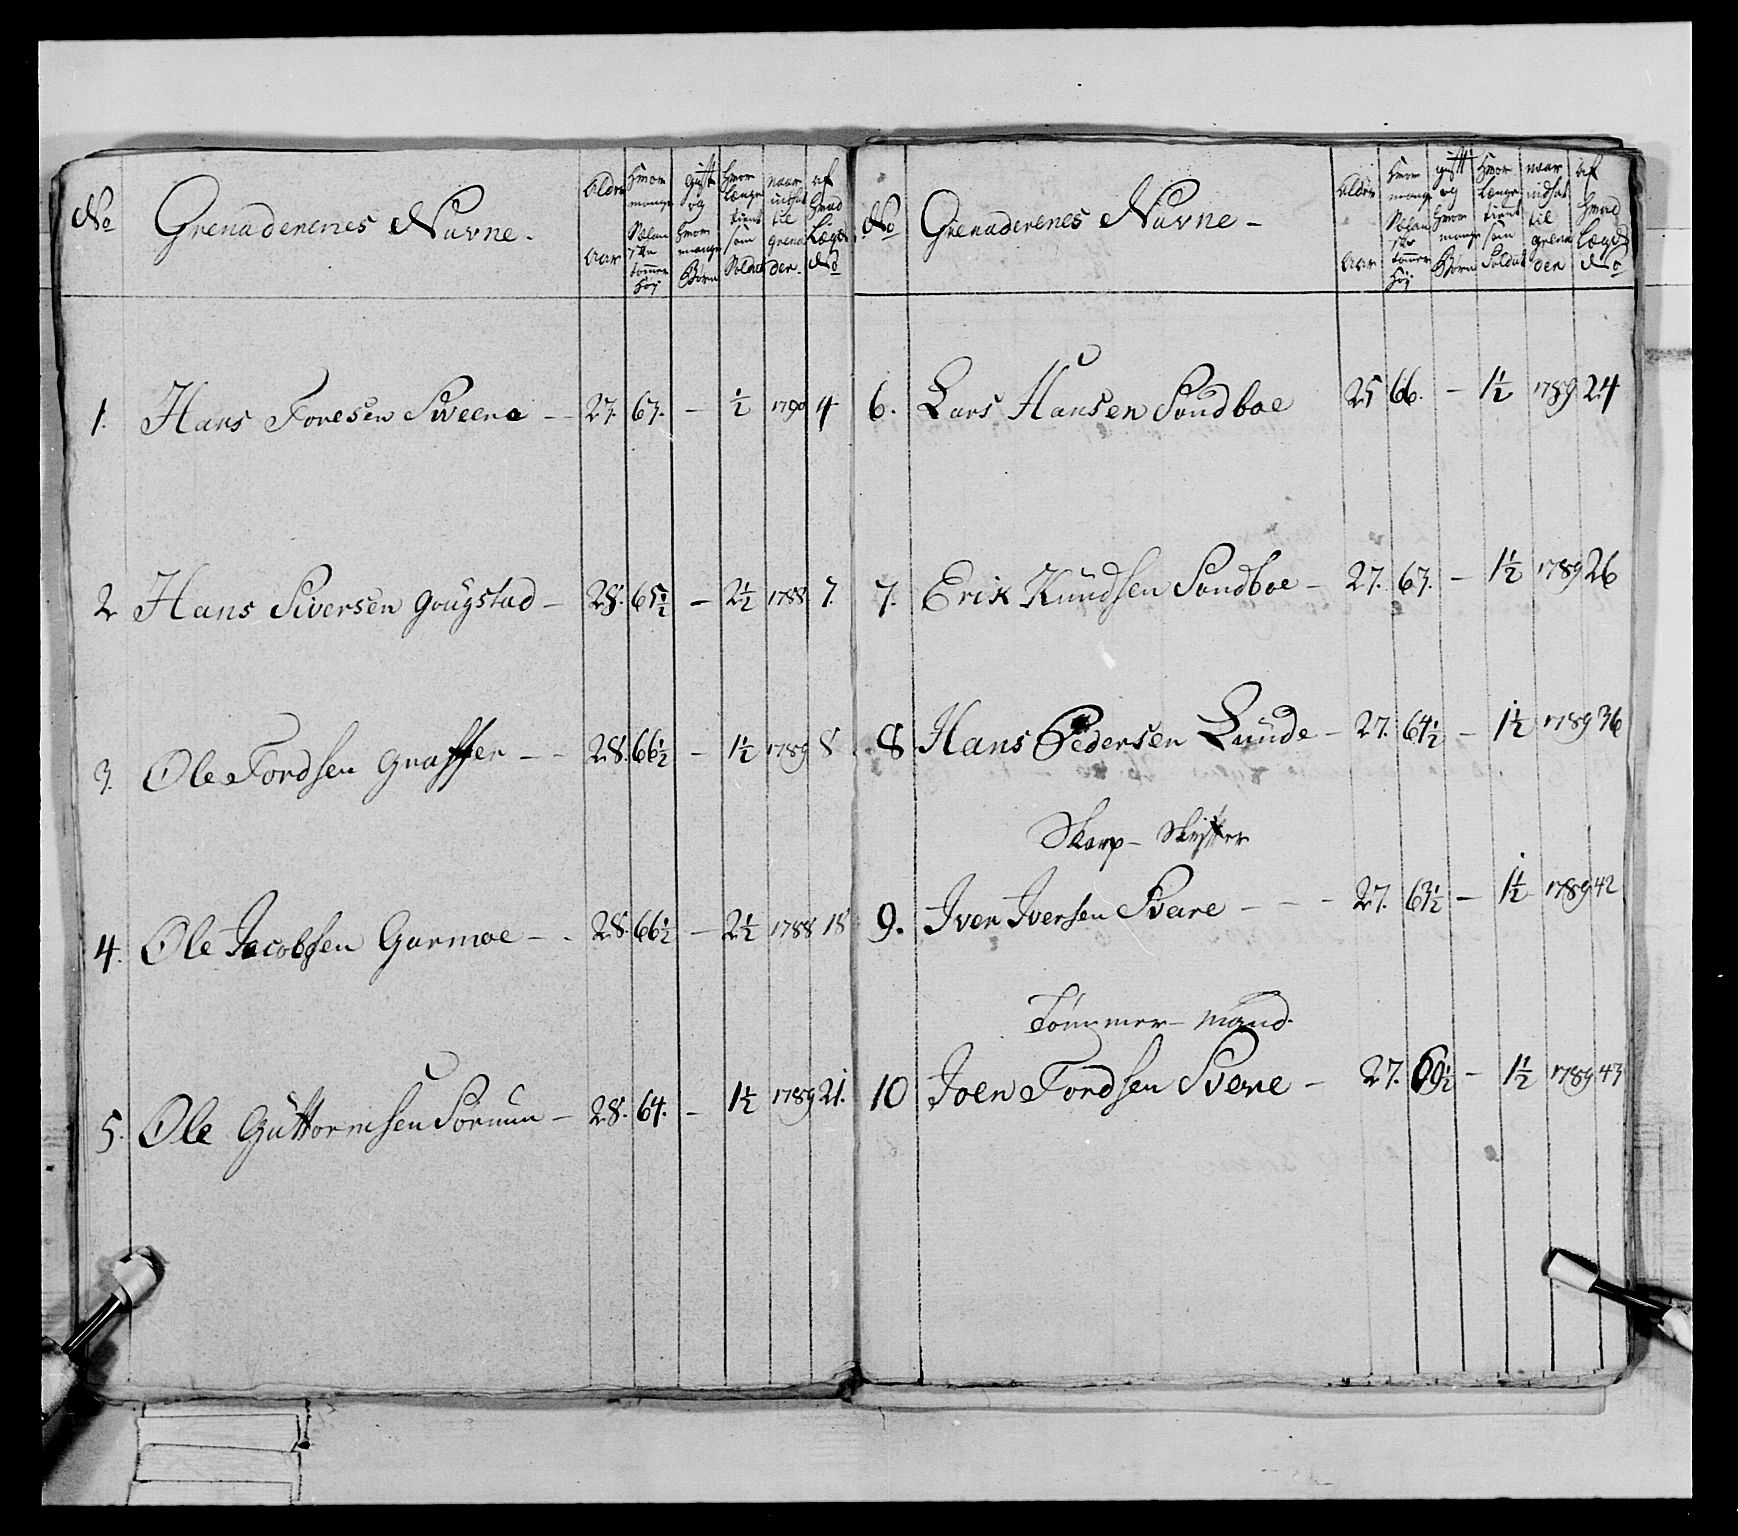 No Grenaderenes Navne. Alder Aar Hvor mange Sælan ske tommer høy gift og hvor mange Børn Hvor Længe tient som Soldat naar udsat til grena den. af Hvad Lægd No
1. Hans Toresen Sveene - - 27. 67. - ½ 1790 4
2 Hans Siversen gougstad - 28. 65½ - 2½ 1788 7.
3. Ole Tordsen graffer - - 28. 66½ - 1½ 1789 8
4. Ole Jacobsen Garmoe - - 28. 66½ - 2½ 1788 18
5. Ole Guttormsen Sorum - 28. 64. - 1½ 1789 21.
No Grenaderenes Navne - Alder Aar Hvor mange Sælan ske tommer høy gift og Hvor mange Børn Hvor Længe tient som Soldat naar udsat til grena den af Hvad Lægd No
6. Lars Hansen Sandboe 25 66. - 1½ 1789 24
7. Erik Knudsen Sandboe - 27. 67. - 1½ 1789 26
8 Hans Pedersen Lunde - 27. 64½ - 1½ 1789 36
Skarp - Skytter
9. Iver Iversen Sveene - - - 27. 63½ - 1½ 1789 42
Tømmer - mand.
10 Joen Tordsen Sveene - 27. 69½ - 1½ 1789 43